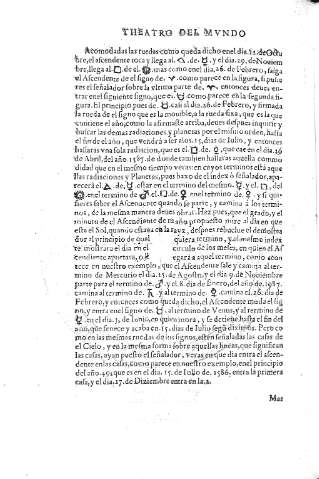 THEATRO DEL MVNDO
Acomodadas las ruedas como queda dicho en el dia. 12. de Octu
bre, el ascendente toca y llega al △. de ☿. y el dia. 29. de Nouiem
bre, llega al □. de el mas como en el dia, 26. de Febrero, salga
el Ascendente de el signo de como parece en la figura, si pusie
res el señalador sobre la vltima parte de entonces deues en-
trar en el siguiente signo, que es como parece en la segunda fi-
gura. El principio pues de cae al dia. 26. de Febrero, y firmada
la rueda de el signo que es la mouible, a la rueda fixa, en la que
contiene el año, como la almanaste arriba, deues despues inquirir y
buscar las demas radiaciones y planetas por el mismo orden, hasta
el fin de el año, que vendrá a ser a los. 15. dias de Iulio, y entonces
hallaras vna sola radiacion, que es el □. de que cae en el dia. 26
de Abril, del año. 1587. de donde tambien hallaras aquella commo
didad que en el mismo tiempo veras: en yos terminos esta aque
llas radiaciones y Planetas, pues baxo de el index ó señalador, apa-
recerá el △. de estar en el termino del mesmo. y el □. del
en el termino de ♂. el □. de en el termino de y si qui-
sieres saber el Ascendente quando, se parte, y camina a los termi-
nos, de la mesma manera deues obrar. Haz pues, que el grado, y el
minuto de el Ascendente de tu año propuesto mire al dia en que
esta el Sol, quando estaua en la rayz, despues rebuelue el demostra
dor al principio de qual quiera termino, y al mesmo index
te mostrará el dia en el circulo de los meses, en quien el As
cendiente apuntara, o llegará a aquel termino, como acon
tece en nuestro exemplo, que el Ascendente sale y camina al ter-
mino de Mercurio el dia. 15. de Agosto, y el dia 9. de Nouiembre
parte para el termino de ♂. y el. 8. dia de Enero, del año de 1587.
camina al termino de y al termino de camina el. 26. dia de
Febrero, y entonces como queda dicho, el Ascendente muda el sig
no, y entra en el signo de al termino de Venus, y al termino de
en el dia. 3. de Iunio, en quien anda, y se detiene hasta el fin del
año, que fenece y acaba en. 15. dias de Iulio segūdixiste. Pero co
mo en las mesmas ruedas de los signos, estén señaladas las casas de
el Cielo, y en la mesma forma sobre aquellas lineas, que significan
las casas, ayan puesto el señalador, veras en que dia entra el ascen-
dente en las casas, como parece en nuestro exemplo, en el principio
del año. 49. que es en el dia. 15. de Iulio de. 1586. entra la primera
casa, y el dia. 17. de Diziembre entra en la. 2.
Mas